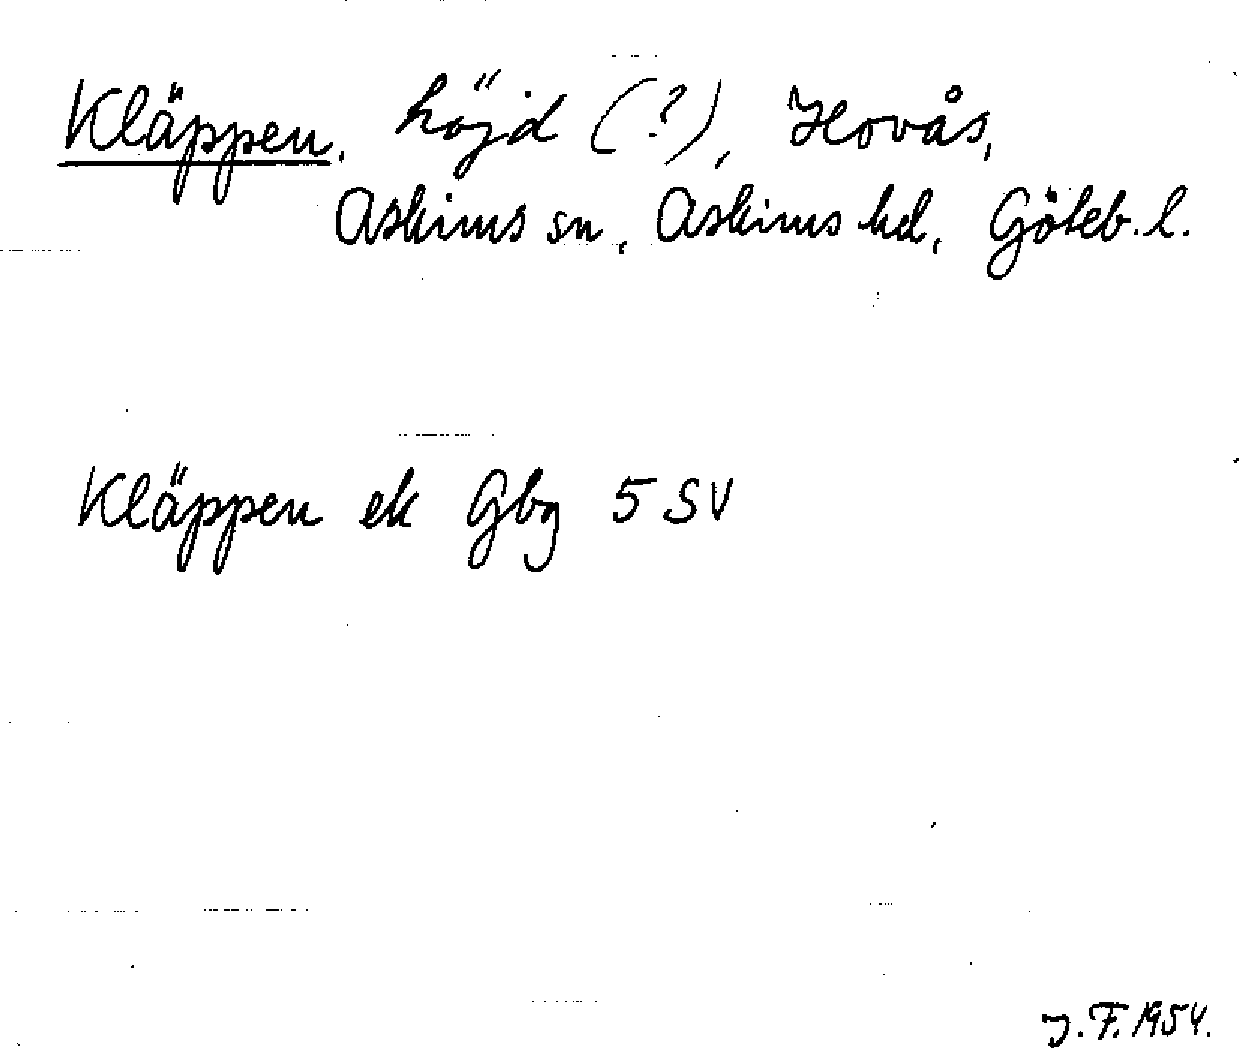 Kläppen, höjd (?), Hovås,
Askims sn, Askims hd, Göteb. l.
Kläppen ek Gbg 5 SV
J. F. 1954.